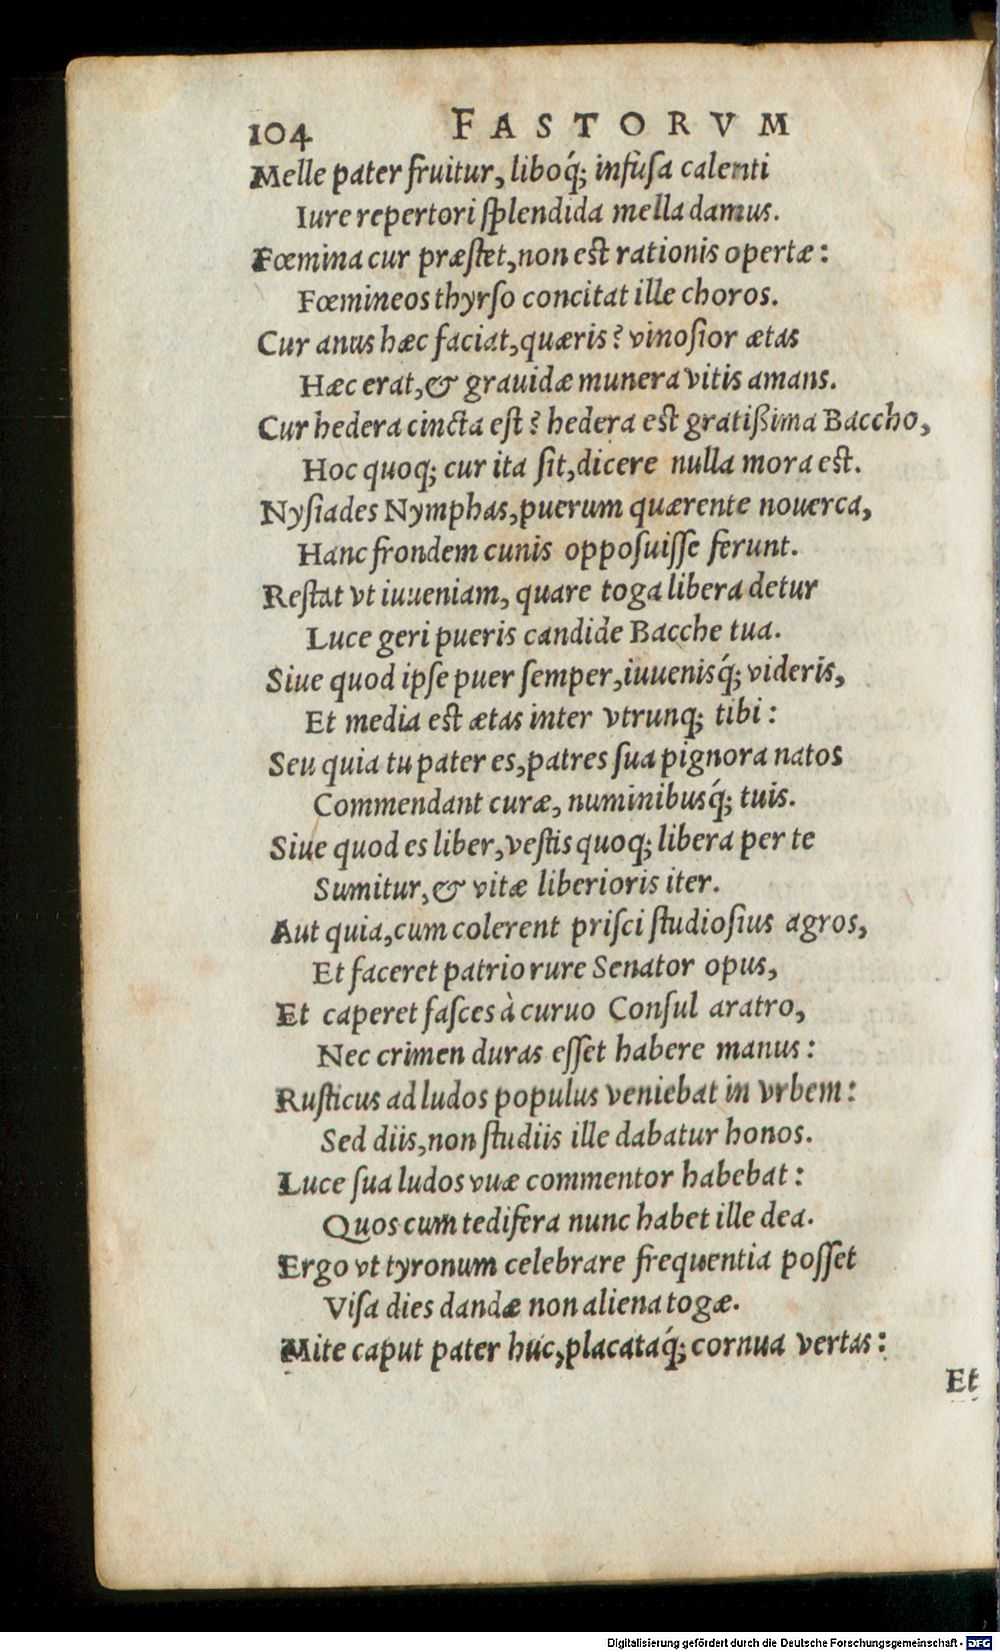 104 FASTORVM
Melle pater fruitur, liboq́; infuſa calenti
Iure repertori ſplendida mella damus.
Fœmina cur præſtet, non est rationis opertæ:
Fœmineos thyrſo concitat ille choros.
Cur anus hæc faciat, quæris? vinoſior ætas
Hæc erat, & grauidæ munera vitis amans.
Cur hedera cincta eſt? hedera est gratiſſima Baccho,
Hoc quoq; cur ita ſit, dicere nulla mora est.
Nyſiades Nymphas, puerum quærente nouerca,
Hanc frondem cunis oppoſuiſſe ferunt.
Reſtat vt iuueniam, quare toga libera detur
Luce geri pueris candide Bacche tua.
Siue quod ipſe puer ſemper, iuuenisq́; videris,
Et media est ætas inter vtrunq; tibi:
Seu quia tu pater es, patres ſua pignora natos
Commendant curæ, numinibusq́; tuis.
Siue quod es liber, veſtis quoq; libera per te
Sumitur, & vitæ liberioris iter.
Aut quia, cum colerent priſci ſtudioſius agros,
Et faceret patrio rure Senator opus,
Et caperet faſces à curuo Conſul aratro,
Nec crimen duras eſſet habere manus:
Ruſticus ad ludos populus veniebat in vrbem:
Sed diis, non ſtudiis ille dabatur honos.
Luce ſua ludos vuæ commentor habebat:
Quos cum tedifera nunc habet ille dea.
Ergo vt tyronum celebrare frequentia poſſet
Viſa dies dandæ non aliena togæ.
Mite caput pater huc, placataq́; cornua vertas:
Et
Digitalisierung gefördert durch die Deutsche Forschungsgemeinschaft - DFG